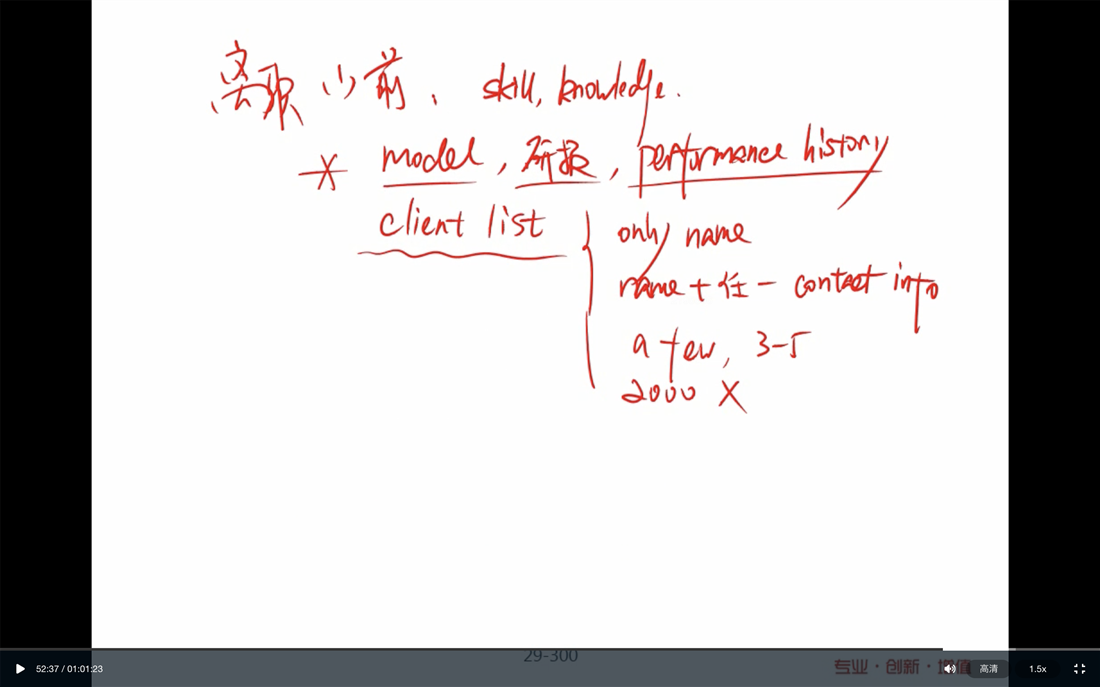 离职以前、skill, knowledge.
model, 研报, performance history
client list
only name
name + 任一 contact info
a few, 3-5
2000 X
29-300
专业·创新·增值
52:37 / 01:01:23
高清
1.5x